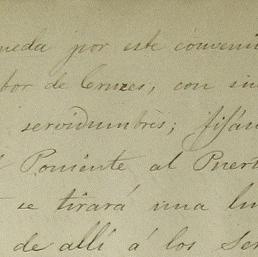 ueda por este conveni
bor de Cruzes, con su
servidumbrês; fiján
l Poniente al Puert
se tirará una lin
de allí á los Ser